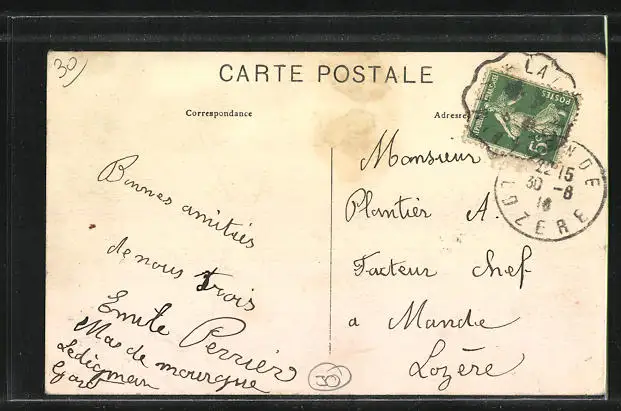 30
CARTE POSTALE
Correspondance
Adresse
Bonnes amitiés
de nous trois
Emile Perrier
Mas de mourgue
Ledignan
Gard
Monsieur
Plantier A.
Facteur chef
a Mande
Lozère
POSTES
5c
22-15
30-8
16
LOZERE
30